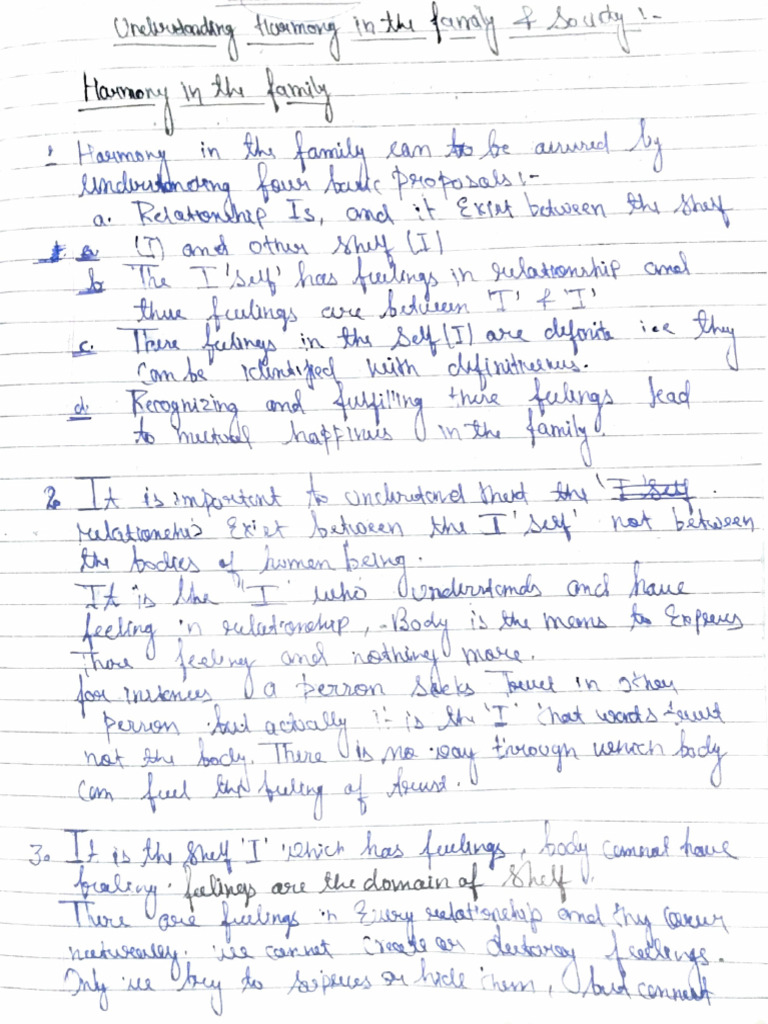 Understanding Harmony in the family & Society :-
Harmony in the family
1. Harmony in the family can to be assured by
understanding four basic proposals :-
a. Relationship Is, and it Exist between the shelf
a (I) and other shelf (I)
b The I 'self' has feelings in relationship and
these feelings are between 'I' & 'I'
c. These feelings in the Self (I) are definite i.e they
can be identified with definitiveness.
d. Recognizing and fulfilling these feelings lead
to mutual happiness in the family.
2. It is important to understand that the 'I 'self'
relationship Exist between the I 'self' not between
the bodies of human being.
It is the "I" who understands and have
feeling in relationship, Body is the means to Express
those feeling and nothing more.
for instances a person seeks trust in other
person but actually it is the 'I' that wants trust
not the body. There is no way through which body
can feel the feeling of trust.
3. It is the shelf 'I' which has feelings, body cannot have
feeling. feelings are the domain of shelf.
There are feelings in Every relationship and they occur
naturally. we cannot create or destroy feelings.
Only we try to suppress or hide them, but cannot